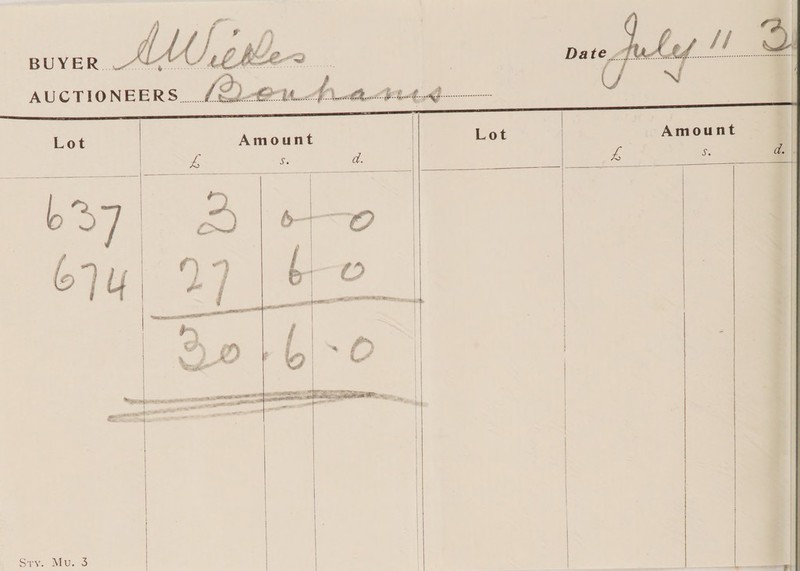 BUYER A Wickes
Date July 11 3
AUCTIONEERS Bonhams
Lot Amount Lot Amount
£ s. d. £ s. d.
637 3 0-0
674 27 6-0
30.6.0
STY. MU. 3